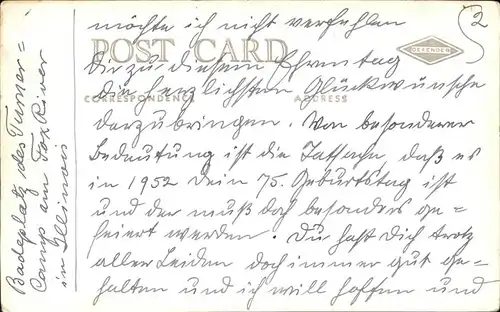 2
möchte ich nicht verfehlen
POST CARD
DEFENDER
Dir zu diesem Ehrentag
die herzlichsten Glückwünsche
CORRESPONDENCE
ADDRESS
darzubringen. Von besonderer
Bedeutung ist die Tatsache, daß es
in 1952 Dein 75. Geburtstag ist
und der muß doch besonders ge=
feiert werden. Du hast Dich trotz
aller Leiden doch immer gut ge=
halten und ich will hoffen und
Badeplatz des Turner=
Camp am Fox River
in Illinois